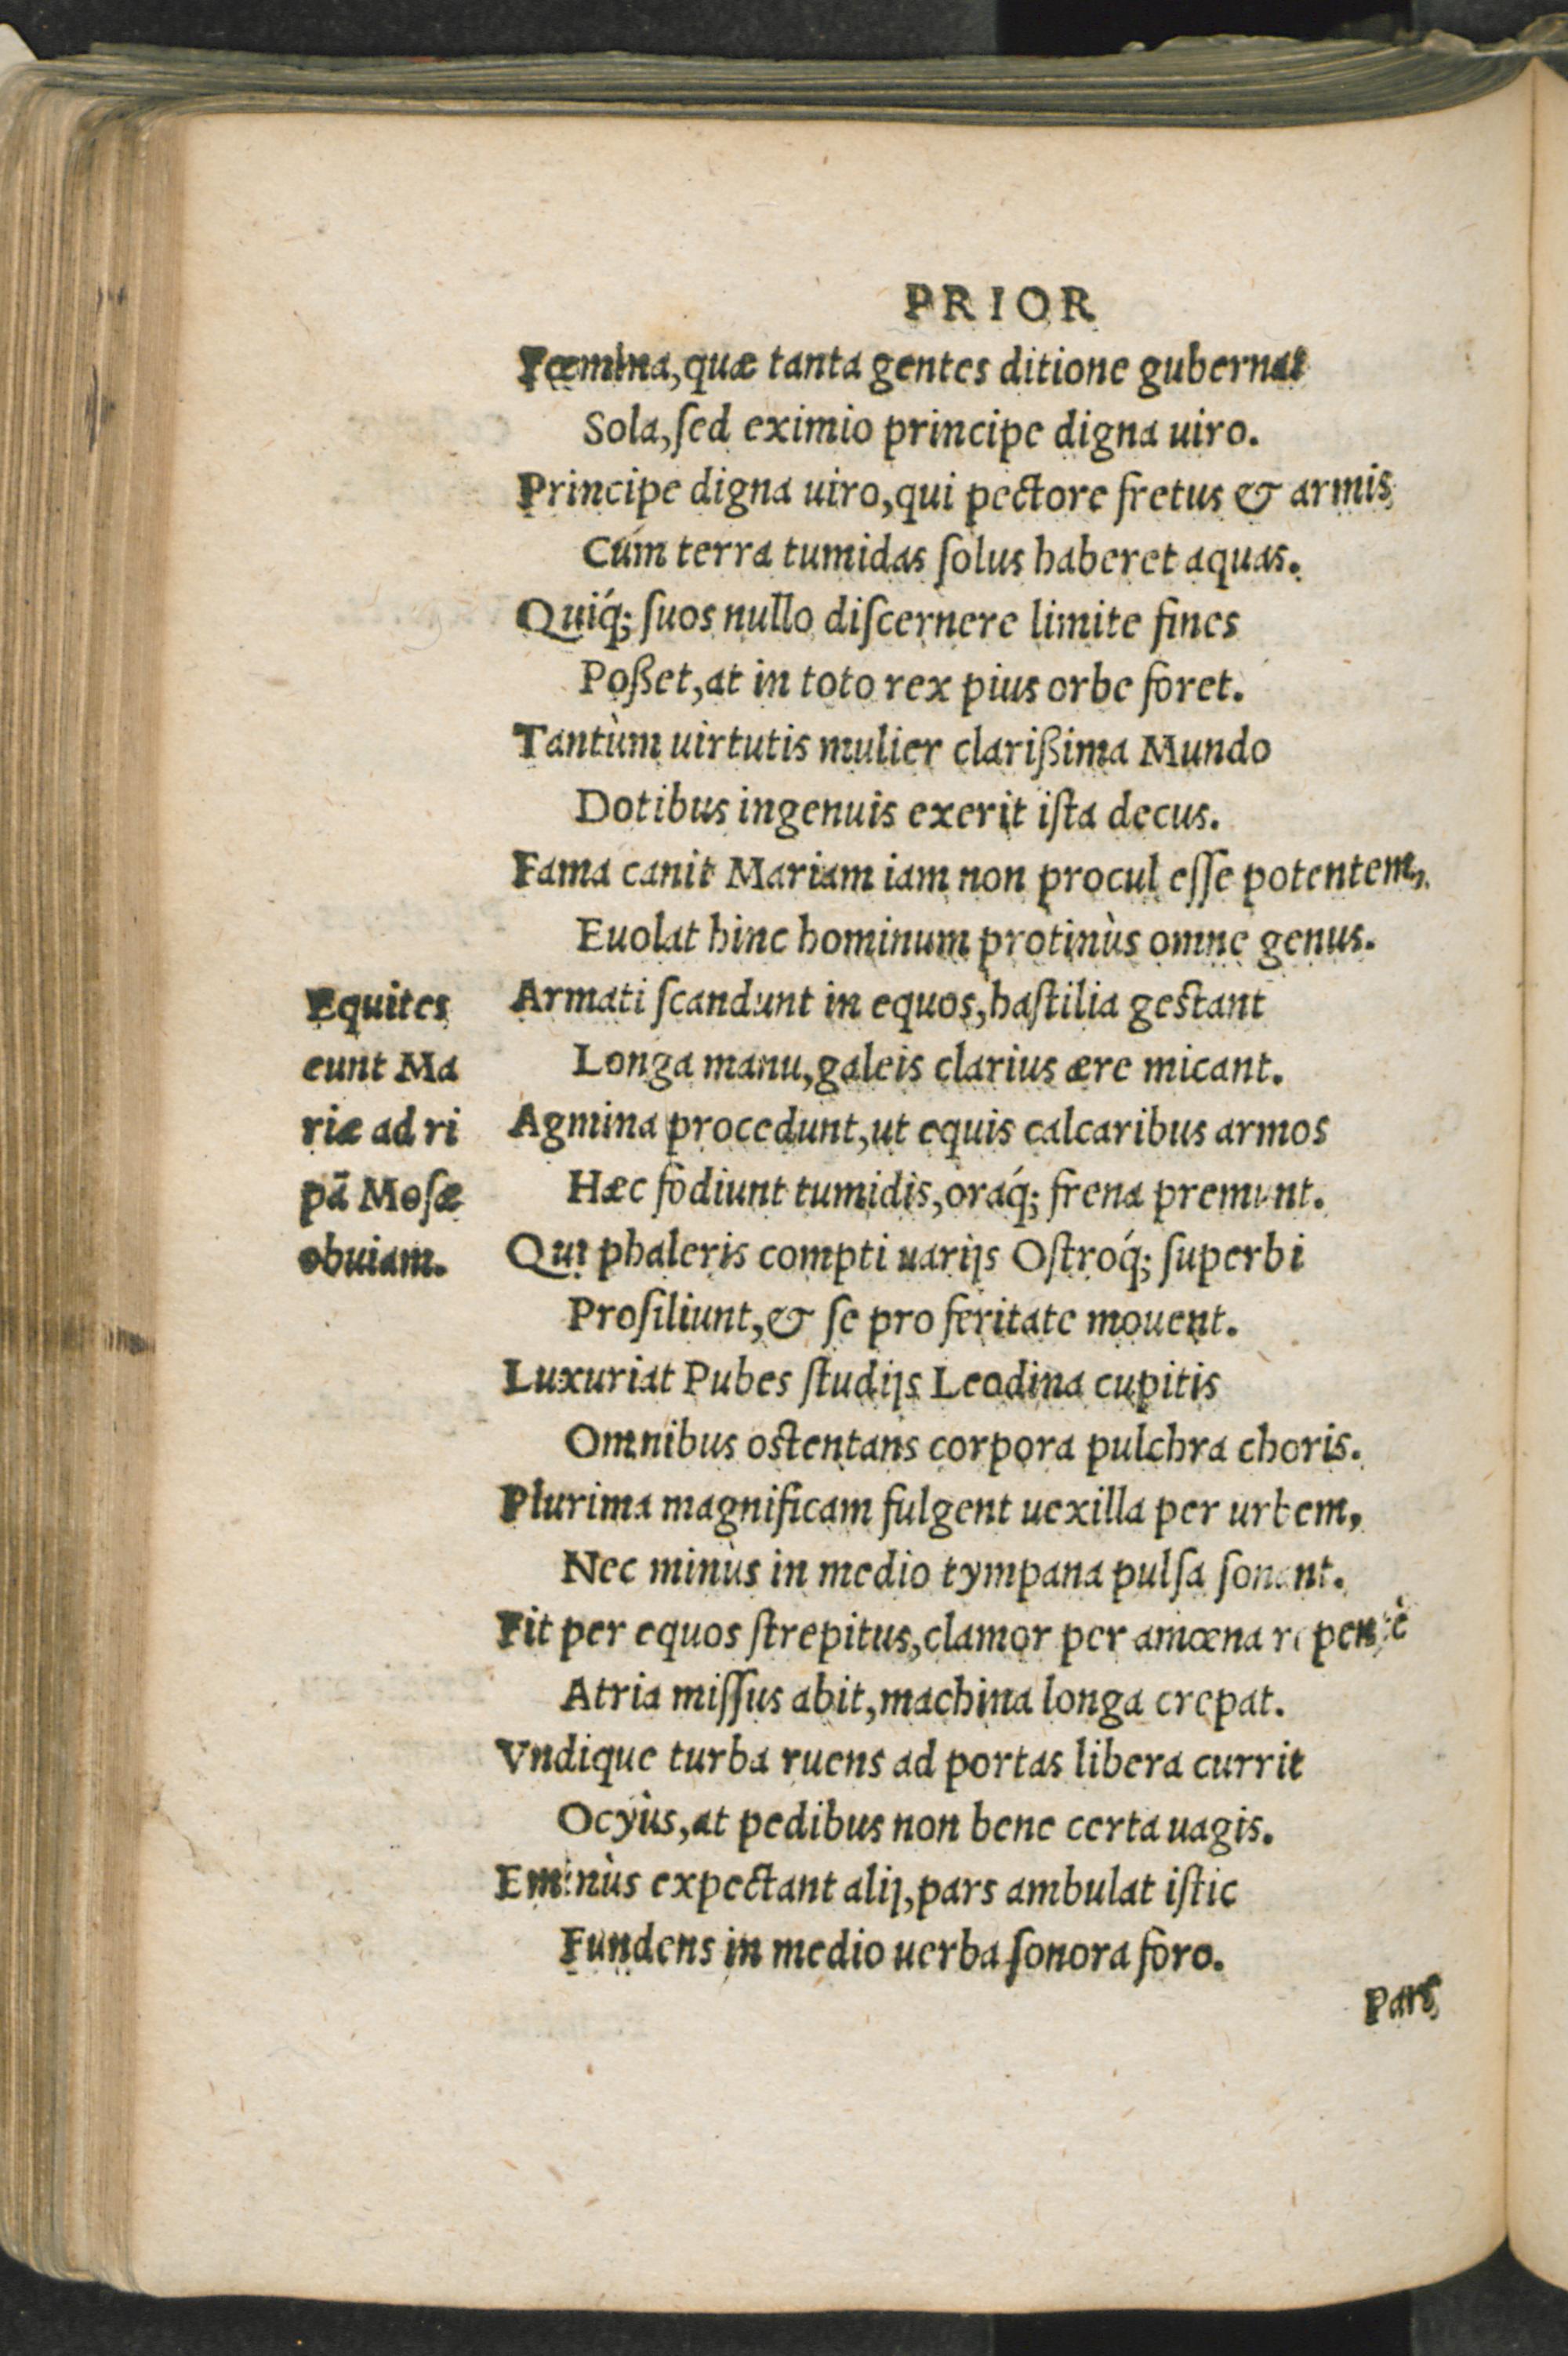 PRIOR
Fœmina, quæ tanta gentes ditione gubernat
Sola, ſed eximio principe digna uiro.
Principe digna uiro, qui pectore fretus & armis
Cúm terra tumidas ſolus haberet aquas.
Quiq́; ſuos nullo diſcernere limite fines
Poßet, at in toto rex pius orbe foret.
Tantùm uirtutis mulier clarißima Mundo
Dotibus ingenuis exerit iſta decus.
Fama canit Mariam iam non procul eſſe potentem,
Euolat hinc hominum protinùs omne genus.
Equites
eunt Ma
riæ ad ri
pā Moſæ
obuiam.
Armati ſcandunt in equos, haſtilia gestant
Longa manu, galeis clarius ære micant.
Agmina procedunt, ut equis calcaribus armos
Hæc fodiunt tumidis, oraq́; frena premunt.
Qui phaleris compti uarijs Oſtroq́; ſuperbi
Proſiliunt, & ſe pro feritate mouent.
Luxuriat Pubes ſtudijs Leodina cupitis
Omnibus ostentans corpora pulchra choris.
Plurima magnificam fulgent uexilla per urbem,
Nec minùs in medio tympana pulſa ſonant.
Fit per equos ſtrepitus, clamor per amœna repentè
Atria miſſus abit, machina longa crepat.
Vndique turba ruens ad portas libera currit
Ocyùs, at pedibus non bene certa uagis.
Eminùs expectant alij, pars ambulat iſtic
Fundens in medio uerba ſonora foro.
Pars